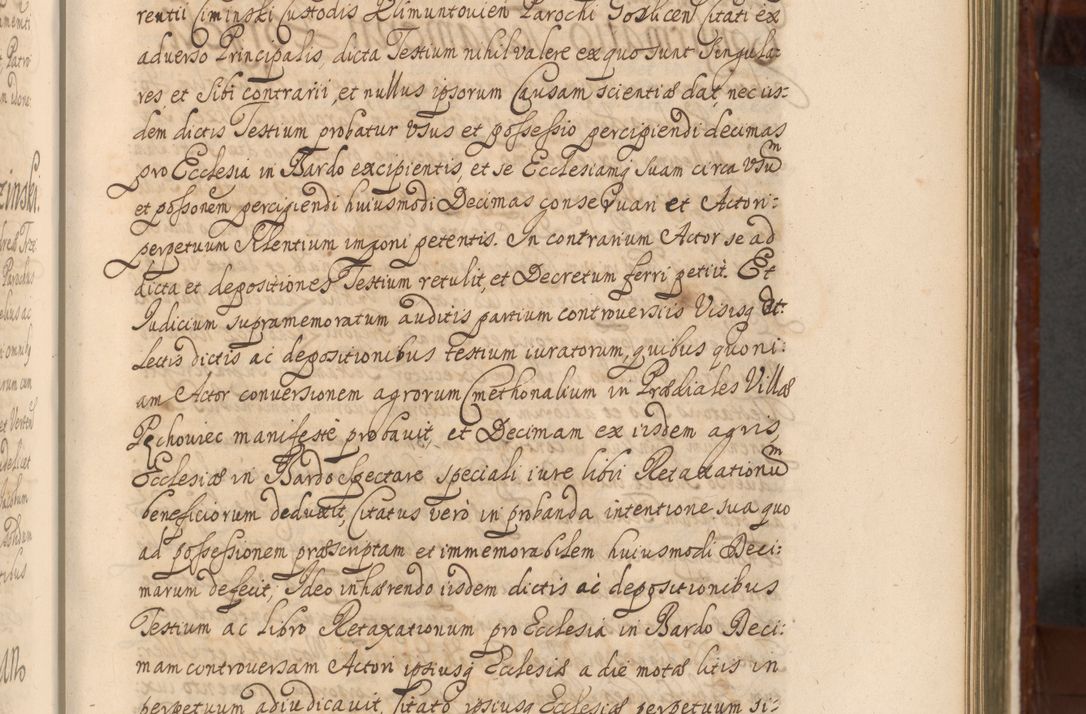 rentii Siminski Custodis Klimuntovien Parochi Goslicen Citati ex
adverso Principalis, dicta Testium nihil valere ex quo sunt Singula-
res et Sibi contrarii, et nullus ipsorum Causam scientiæ dat, nec iis-
dem dictis Testium probatur Usus et possessio percipiendi decimas
pro Ecclesia in Bardo excipientis, et se Ecclesiamq suam circa Usum
et possonem percipiendi huiusmodi Decimas conservari et Actori
perpetuum Silentium imponi petentis. In contrarium Actor se ad
dicta et depositiones Testium retulit, et Decretum ferri petiit. Et
Iudicium supramemoratum auditis partium controversiis Visisq et
Lectis dictis ac depositionibus testium iuratorum, quibus quoni:
am Actor conversionem agrorum Cmethonalium in Prædiales Villæ
Pęchoviec manifestè probavit, et Decimam ex iisdem agris,
Ecclesiæ in Bardo spectare speciali iure libri Retaxationum
beneficiorum deduxit, Citatus verò in probanda intentione sua quo
ad possessionem præscriptam et immemorabilem huiusmodi Deci:
marum defecit; Ideo inhærendo iisdem dictis ac depositionibus
Testium ac libro Retaxationum pro Ecclesia in Bardo Deci:
mam controversam Actori ipsiusq Ecclesiæ a die motæ litis in
perpetuum adiudicavit, Citato ipsiusq Ecclesiæ perpetuum si-